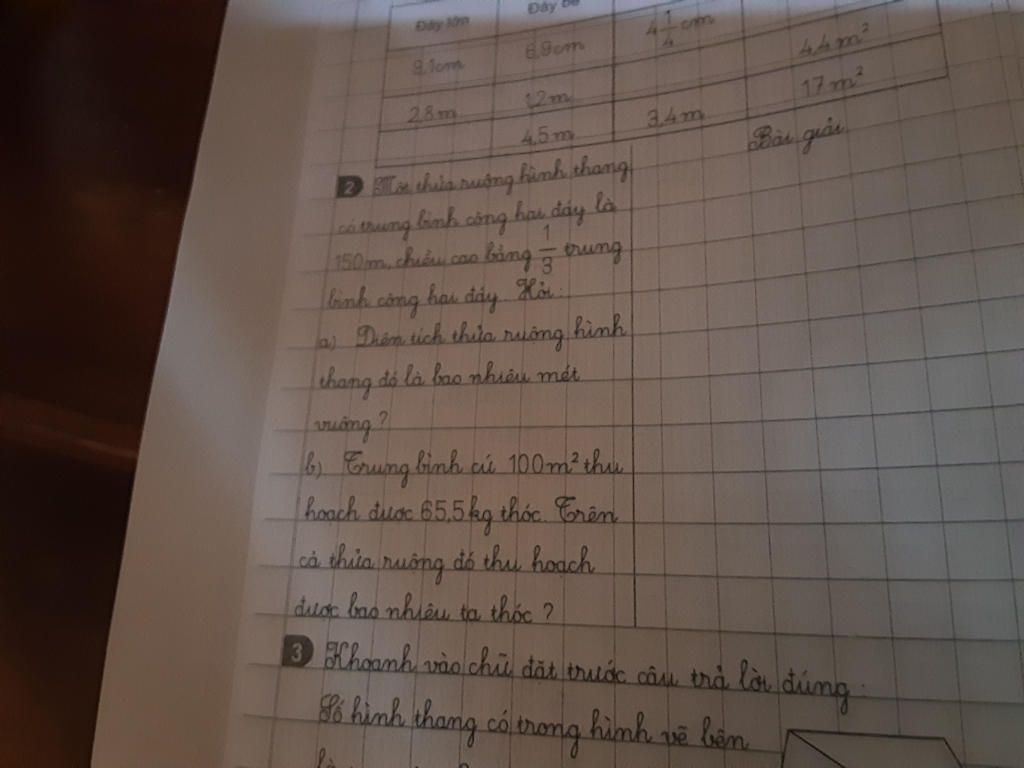 Đáy lớn Đáy bé
9,1cm 6,9cm 4 1/4 cm
2,8m 1,2m 4,4m²
4,5m 3,4m 17m²
Bài giải
2 Một thửa ruộng hình thang
có trung bình cộng hai đáy là
150m, chiều cao bằng 1/3 trung
bình cộng hai đáy. Hỏi:
a) Diện tích thửa ruộng hình
thang đó là bao nhiêu mét
vuông?
b) Trung bình cứ 100m² thu
hoạch được 65,5kg thóc. Trên
cả thửa ruộng đó thu hoạch
được bao nhiêu tạ thóc?
3 Khoanh vào chữ đặt trước câu trả lời đúng:
Số hình thang có trong hình vẽ bên